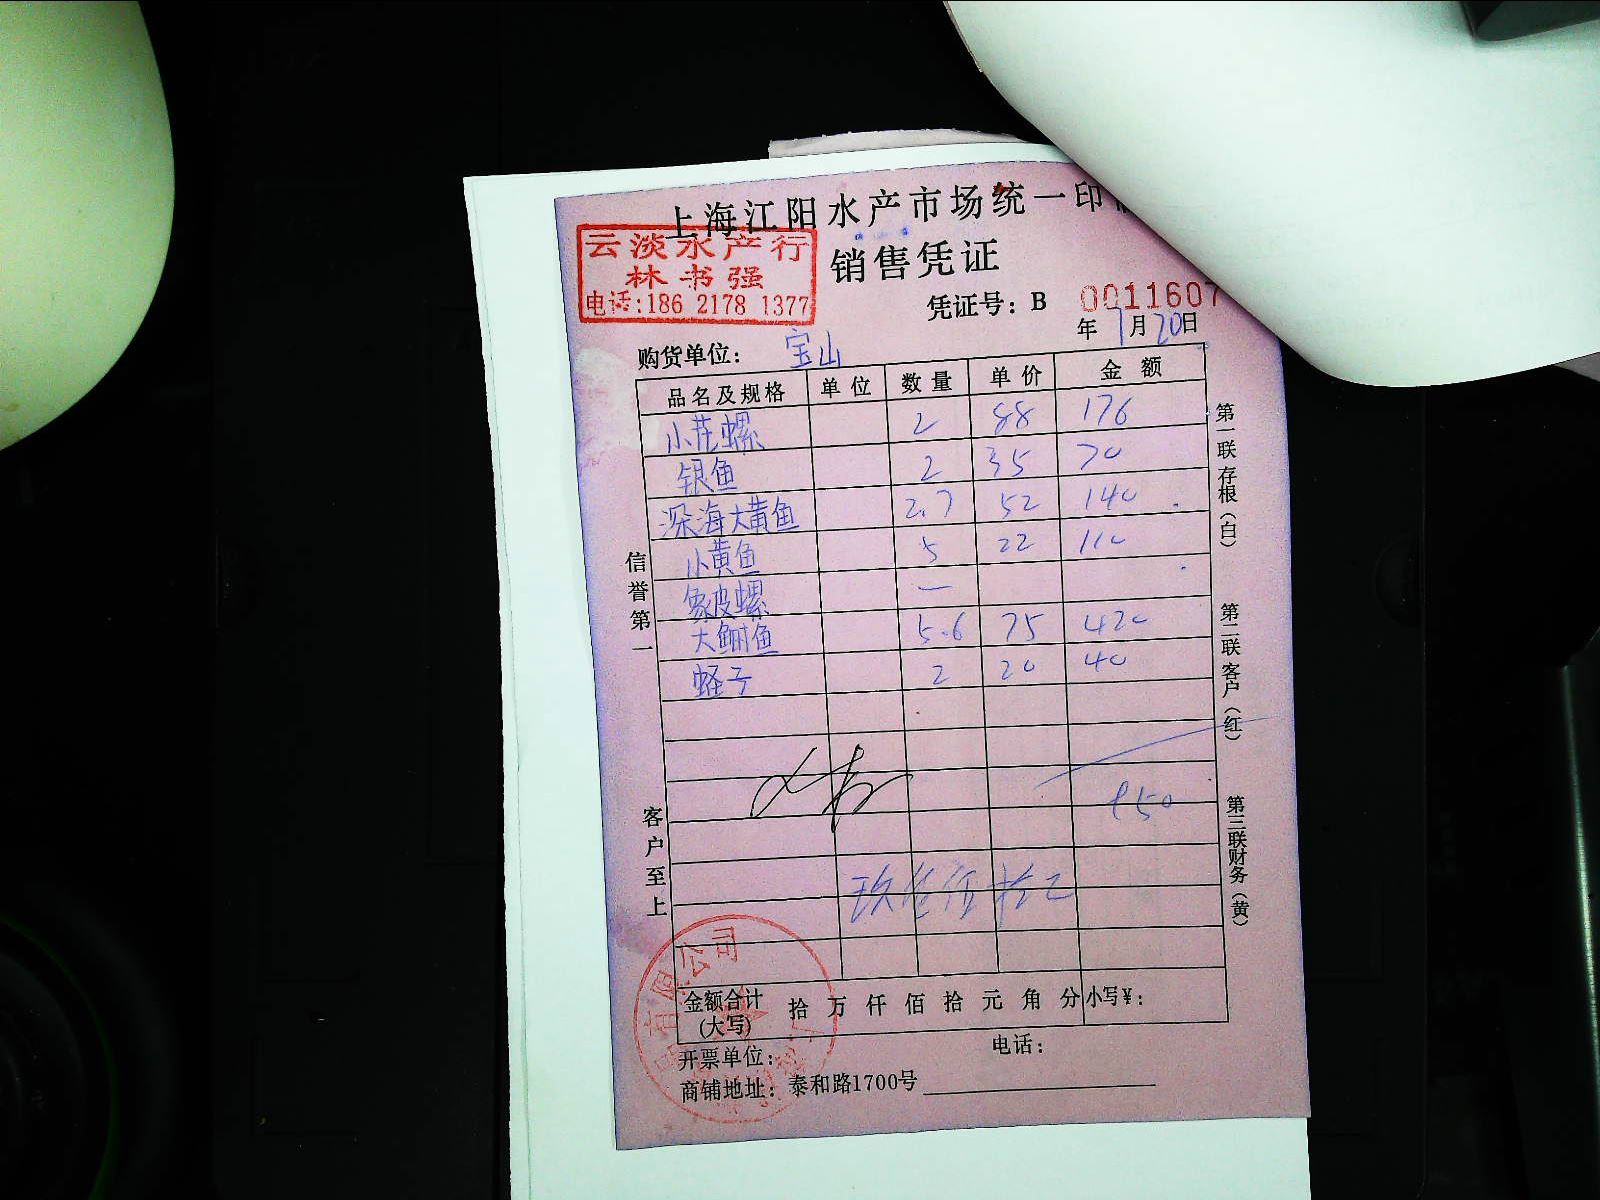 上海江阳水产市场统一印
云淡水产行
林书强
电话:186 2178 1377
销售凭证
凭证号：B 0011607
年 7月20日
购货单位： 宝山
品名及规格 单位 数量 单价 金额
小花螺 2 88 176
银鱼 2 35 70
深海大黄鱼 2.7 52 140
小黄鱼 5 22 110
象皮螺 一
大鲥鱼 5.6 75 420
蛏子 2 20 40
950
玖佰伍拾元
信誉第一
客户至上
第一联存根（白）
第二联客户（红）
第三联财务（黄）
金额合计(大写) 拾 万 仟 佰 拾 元 角 分 小写¥：
开票单位： 电话：
商铺地址：泰和路1700号